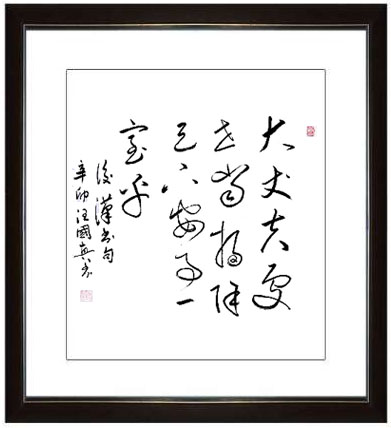 大丈夫處
世當掃除
天下安事一
室乎
後漢書句
辛卯汪國真書